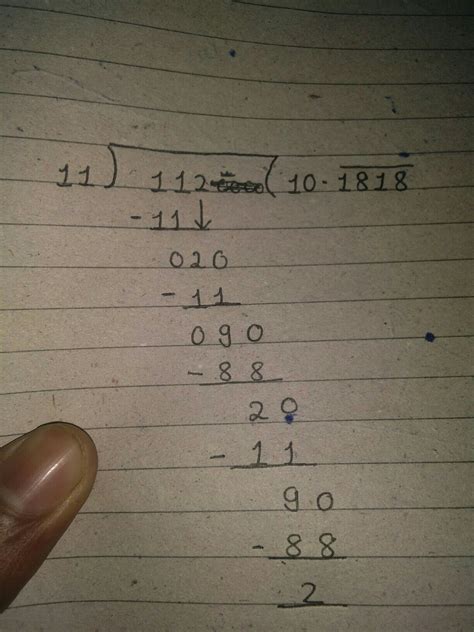 11 ) 112 ( 10.1818
-11 ↓
020
- 11
090
- 88
20
- 11
90
- 88
2